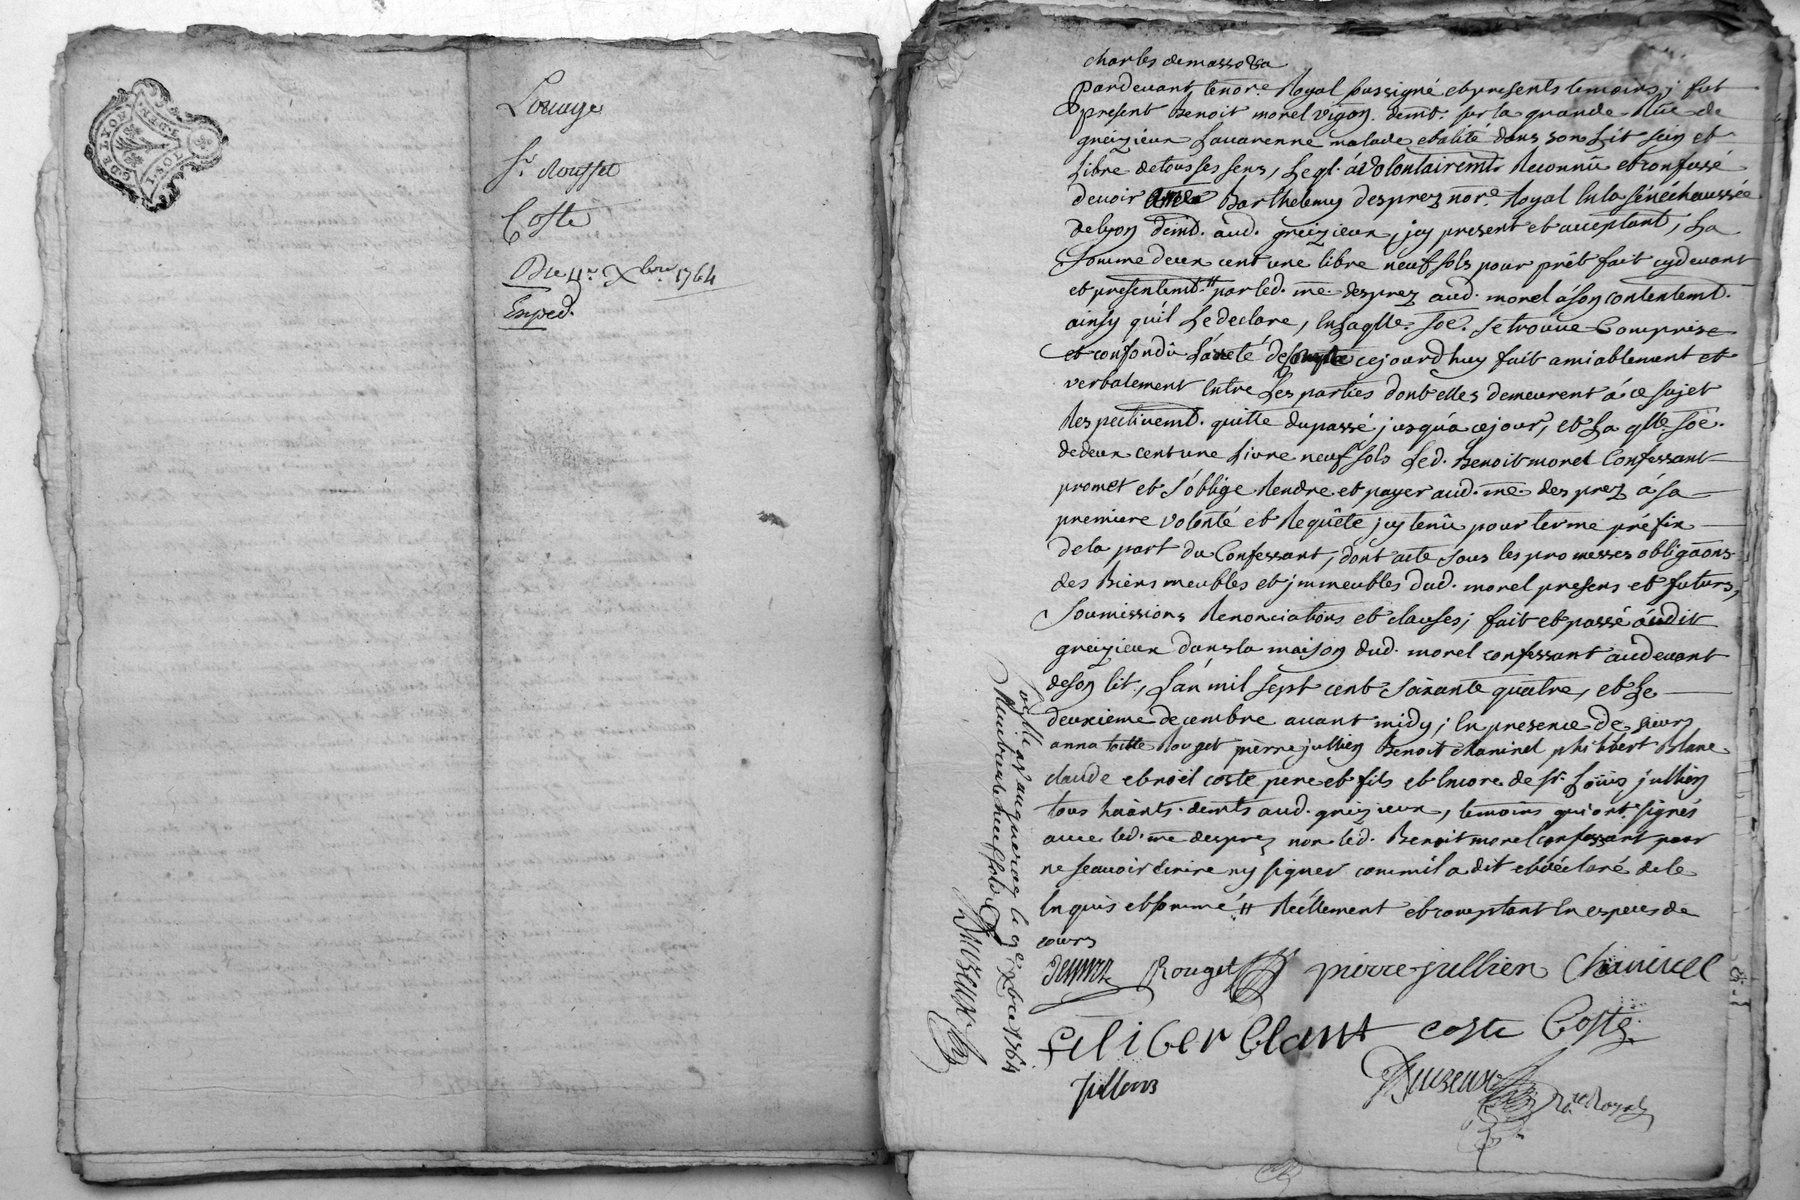 G. DE LYON
1. SOL
Louage
Sr. Rousset
Coste
Du 4e. Xbre. 1764
Exped.
charles demassotza
Pardevant le nore Royal soussigné et presents temoins; fut
present Benoit morel vigon. demt. sur la grande Rüe de
greizieux Lavarenne malade et alité dans son Lit sain et
Libre de tous ses sens, Leql. á volontairemt. Reconnû et confessé
devoir Barthelemy desprez nore. Royal En la sénéchaussée
de lyon demt. aud. greizieux, jcy present et acceptant, La
somme deux cent une libre neuf sols pour prêt fait cydevant
et presentemt. # par led. me. desprez aud. morel á son contentemt.
ainsy quil Le declare, En Laqlle. soe. se trouve Comprise
et confondû L'areté de compte cejourd'huy fait amiablement et
verbalement Entre Les parties dont elles demeurent á ce sujet
Respectivemt. quitte du passé jusqu'á ce jour, et La qlle. soe.
de deux cent une Livre neuf sols Led. Benoit morel Confessant
promet et s'oblige Rendre et payer aud. me. desprez á sa
premiere volonté et Requête jcy tenû pour terme préfix
de la part du Confessant, dont acte sous les promesses obligaons.
des Biens meubles et jmmeubles dud. morel presens et futurs,
soumissions Renonciations et clauses; fait et passé audit
greizieux dans la maison dud. morel confessant audevant
de son lit, L'an mil sept cent soixante quatre, et Le
deuxieme decembre avant midy; En presence de sieurs
anna toille Rouget pierre jullien Benoit chaninel philibert Blanc
claude et noël coste pere et fils et Encore de sr. Loüis jullien
tous haânts. demts aud. greizieux, temoins qui ont signés
avec led. me desprez non led. Benoit morel confessant pour
ne scavoir Ecrire ny signer comm'il a dit et déclaré de le
Enquis et sommé. # Réellement et comptant En especes de
cours
desprez Rouget pierre jullien Chaninel
feliber blanc coste Coste
jullien
Nre Royal
le 9e. Xbre 1764